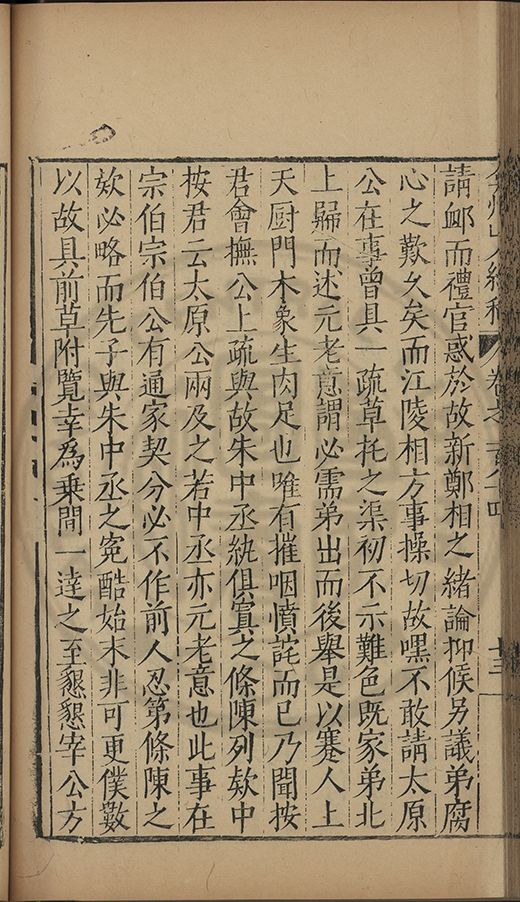 弇州山人續稿 卷之一百八十四 十三
請䘏而禮官惑於故新鄭相之緒論抑候另議弟腐
心之歎久矣而江陵相方事操切故嘿不敢請太原
公在事曾具一疏草托之渠初不示難色既家弟北
上歸而述元老意謂必需弟出而後舉是以蹇人上
天厨門木象生肉足也唯有摧咽憤詫而已乃聞按
君會撫公上疏與故朱中丞紈俱寘之條陳列欵中
按君云太原公兩及之若中丞亦元老意也此事在
宗伯宗伯公有通家契分必不作前人忍第條陳之
欵必略而先子與朱中丞之寃酷始末非可更僕數
以故具前草附覽幸為乗間一達之至懇懇宰公方